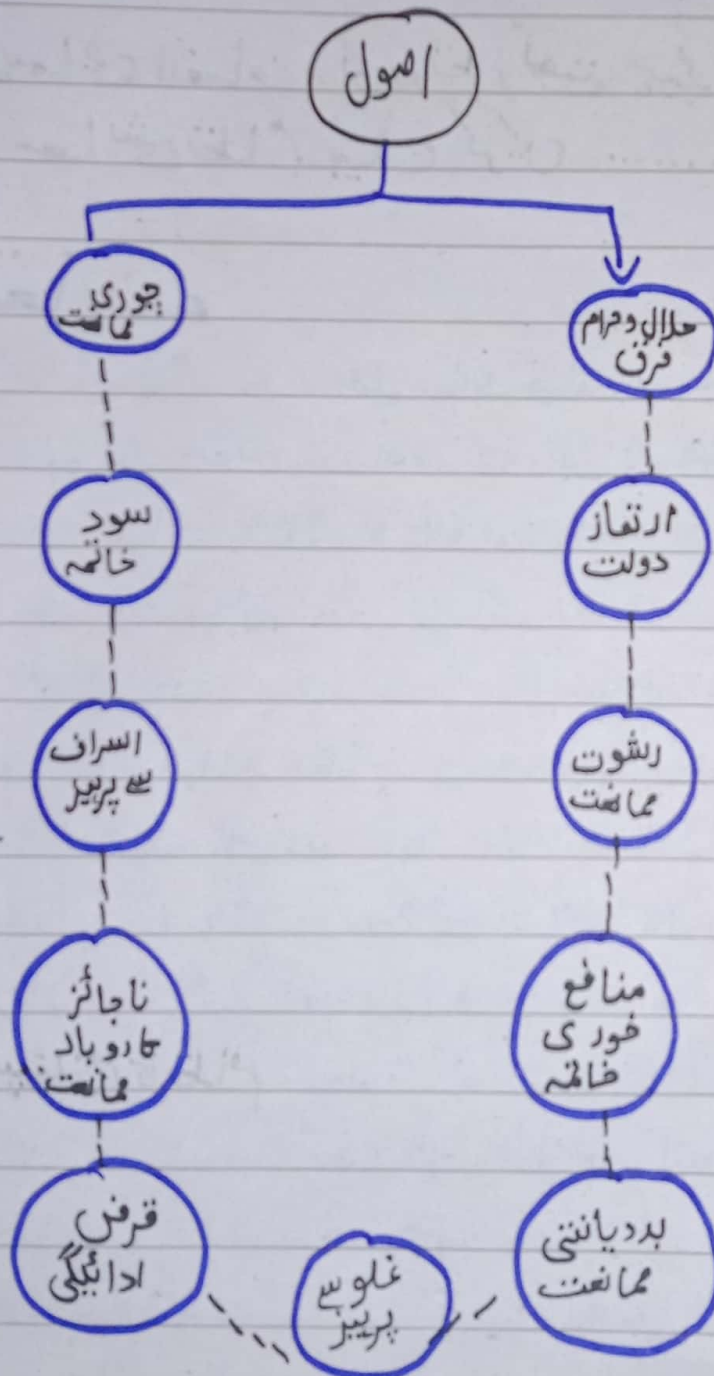 اصول
حلال و حرام
فرق
ارتفاز
دولت
رشوت
ممانعت
منافع
خوری
خاتمہ
بددیانتی
ممانعت
چوری
ممانعت
سود
خاتمہ
اسراف
سے پرہیز
ناجائز
کاروبار
ممانعت
قرض
ادائیگی
غلو سے
پرہیز